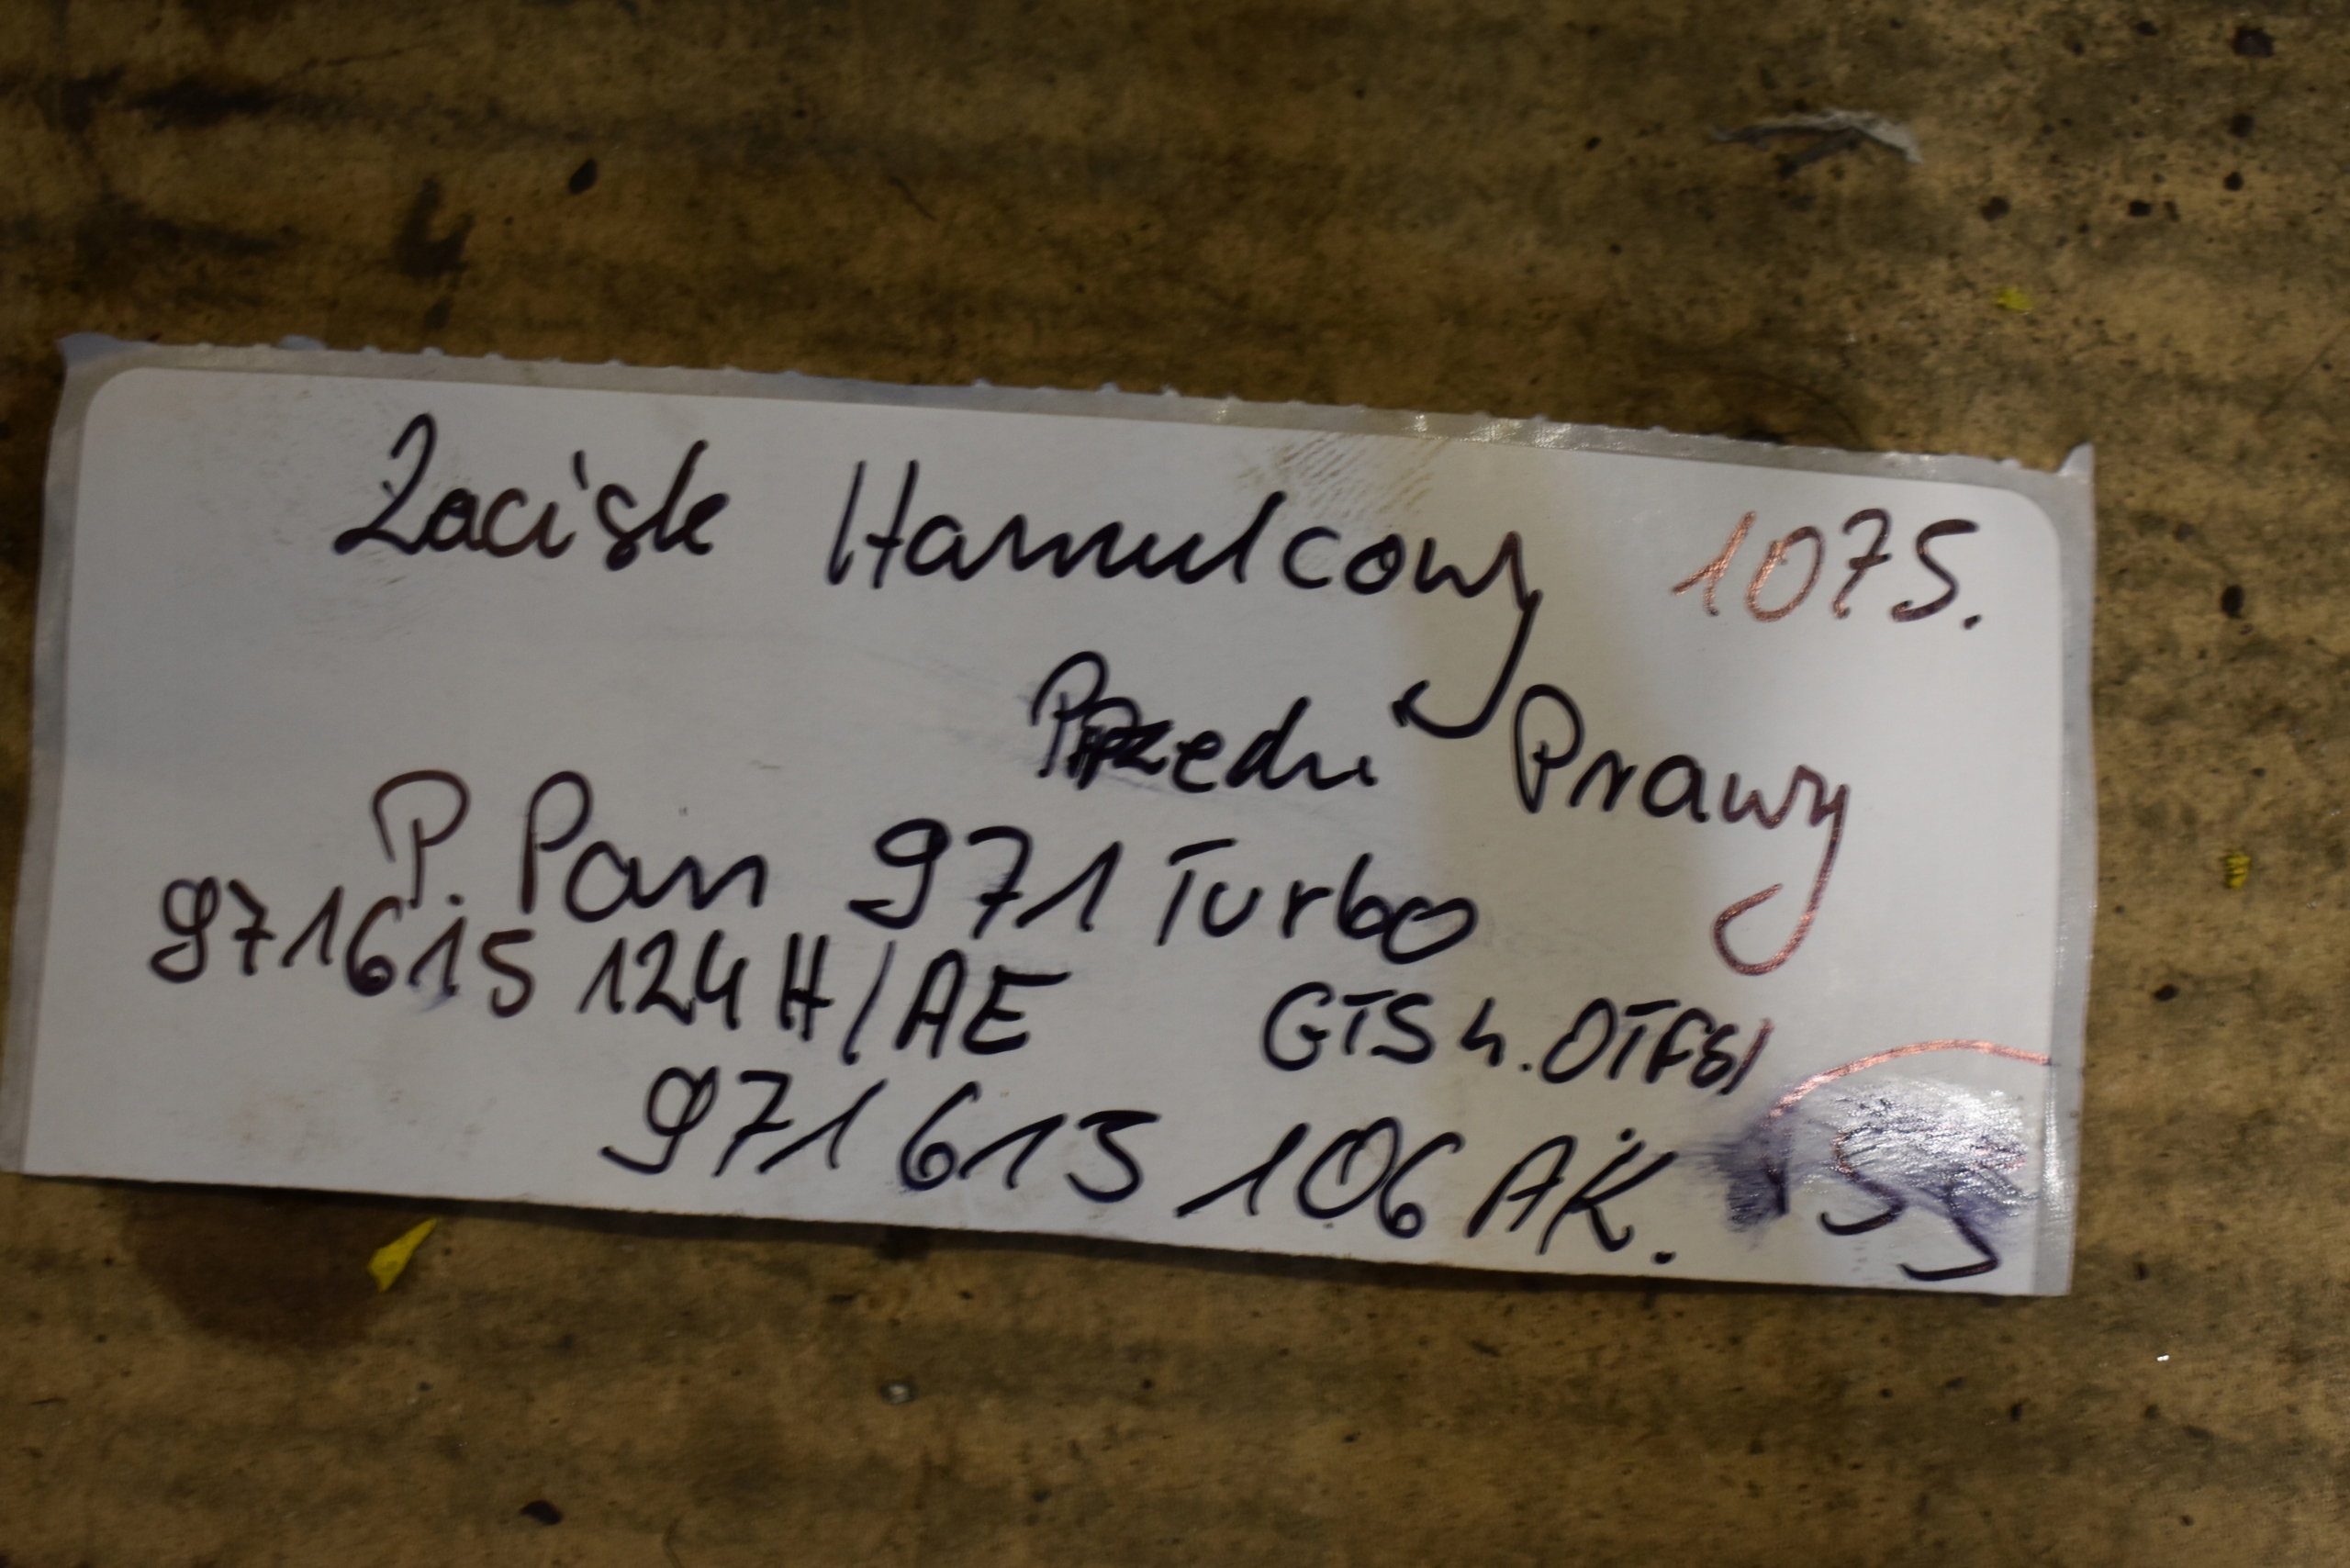 Zacisk Hamulcowy 1075.
Przedni Prawy
P. Pan 971 Turbo
971615 124 H/AE GTS 4.0TFSI
971 615 106 AK.